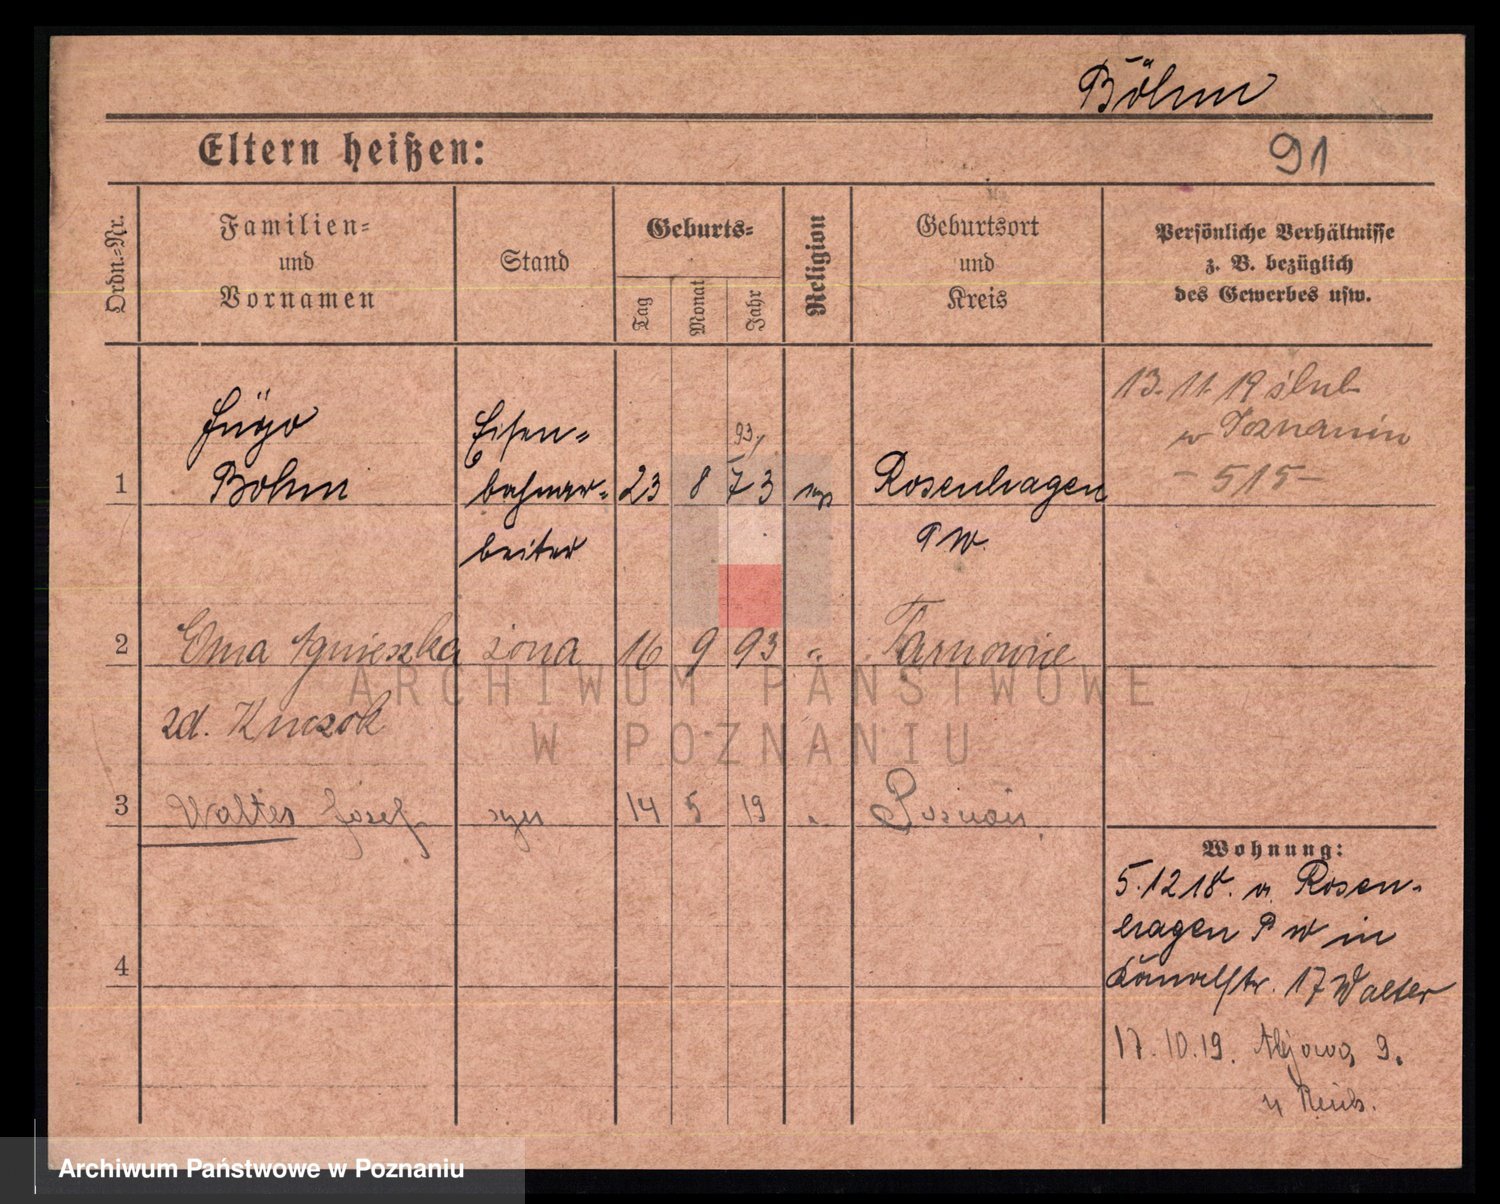 Böhm
Eltern heißen:
91
Ordn.-Nr.
Familien-
und
Vornamen
Stand
Geburts-
Tag
Monat
Jahr
Religion
Geburtsort
und
Kreis
Persönliche Verhältnisse
z. B. bezüglich
des Gewerbes usw.
13. 11. 19 ślub
w Poznaniu
– 515 –
1
Hugo
Böhm
Eisen-
bahnar-
beiter
23
8
93
73
Rosenhagen
P W.
2
Ema Agnieszka
zd.
żona
16
9
93
"
Tarnowie
3
Walter Josef
syn
14
5
19
"
Poznań
4
Wohnung:
5.12 18. v. Rosen-
hagen P W in
Kanalstr. 17 Walter
17.10.19. 9.
ARCHIWUM PAŃSTWOWE
W POZNANIU
Archiwum Państwowe w Poznaniu